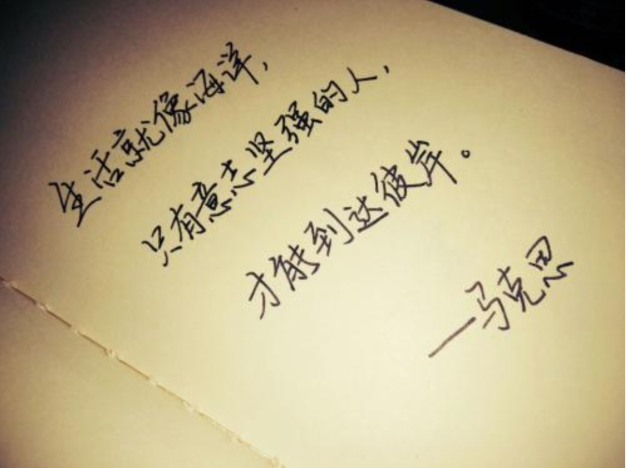 生活就像海洋，
只有意志坚强的人，
才能到达彼岸。
—马克思